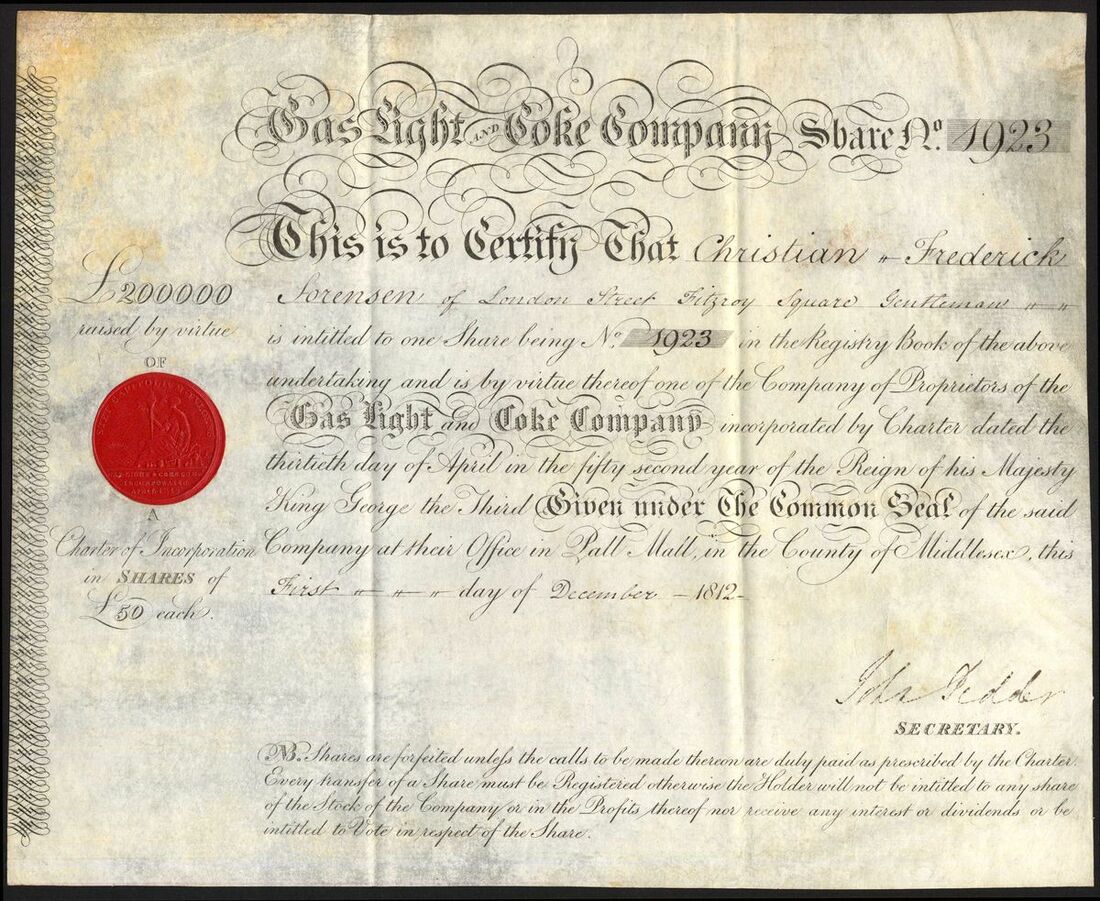 Gas Light AND Coke Company Share No. 1923
This is to Certify That Christian Frederick
Sorensen of London Street Fitzroy Square Gentleman
is intitled to one Share being No. 1923 in the Registry Book of the above
undertaking and is by virtue thereof one of the Company of Proprietors of the
Gas Light and Coke Company incorporated by Charter dated the
thirtieth day of April in the fifty second year of the Reign of his Majesty
King George the Third Given under The Common Seal of the said
Company at their Office in Pall Mall, in the County of Middlesex, this
First day of December 1812
£200000
raised by virtue
OF
INCORPORATED
A
Charter of Incorporation
in SHARES of
£50 each.
John Pedder
SECRETARY.
NB. Shares are forfeited unless the calls to be made thereon are duly paid as prescribed by the Charter.
Every transfer of a Share must be Registered otherwise the Holder will not be intitled to any share
of the Stock of the Company or in the Profits thereof nor receive any interest or dividends or be
intitled to Vote in respect of the Share.